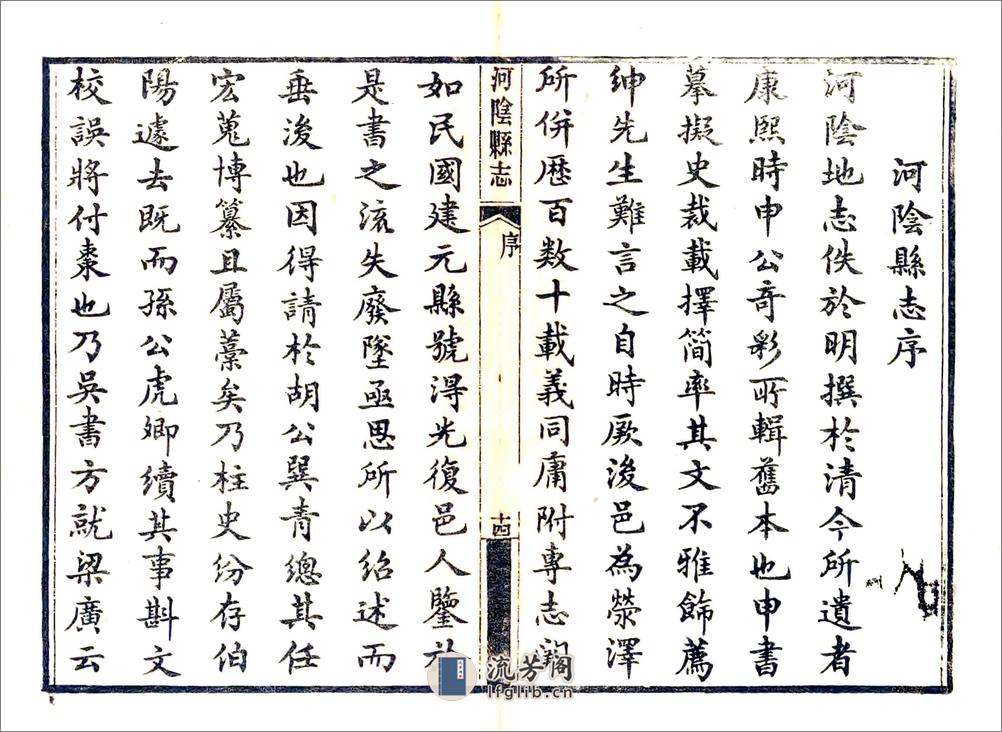 河陰縣志序
河陰地志佚於明撰於清今所遺者
康熙時申公奇彩所輯舊本也申書
摹擬史裁載擇簡率其文不雅飾薦
紳先生難言之自時厥後邑為滎澤
所併歷百數十載義同庸附專志
河陰縣志
序
十四
如民國建元縣號得光復邑人鑒於
是書之流失廢墜亟思所以紹述而
垂後也因得請於胡公巽青總其任
宏蒐博纂且屬藁矣乃柱史紛存伯
陽遽去既而孫公虎卿續其事斟文
校誤將付棗也乃吳書方就梁廣云
流芳閣
lfglib.cn